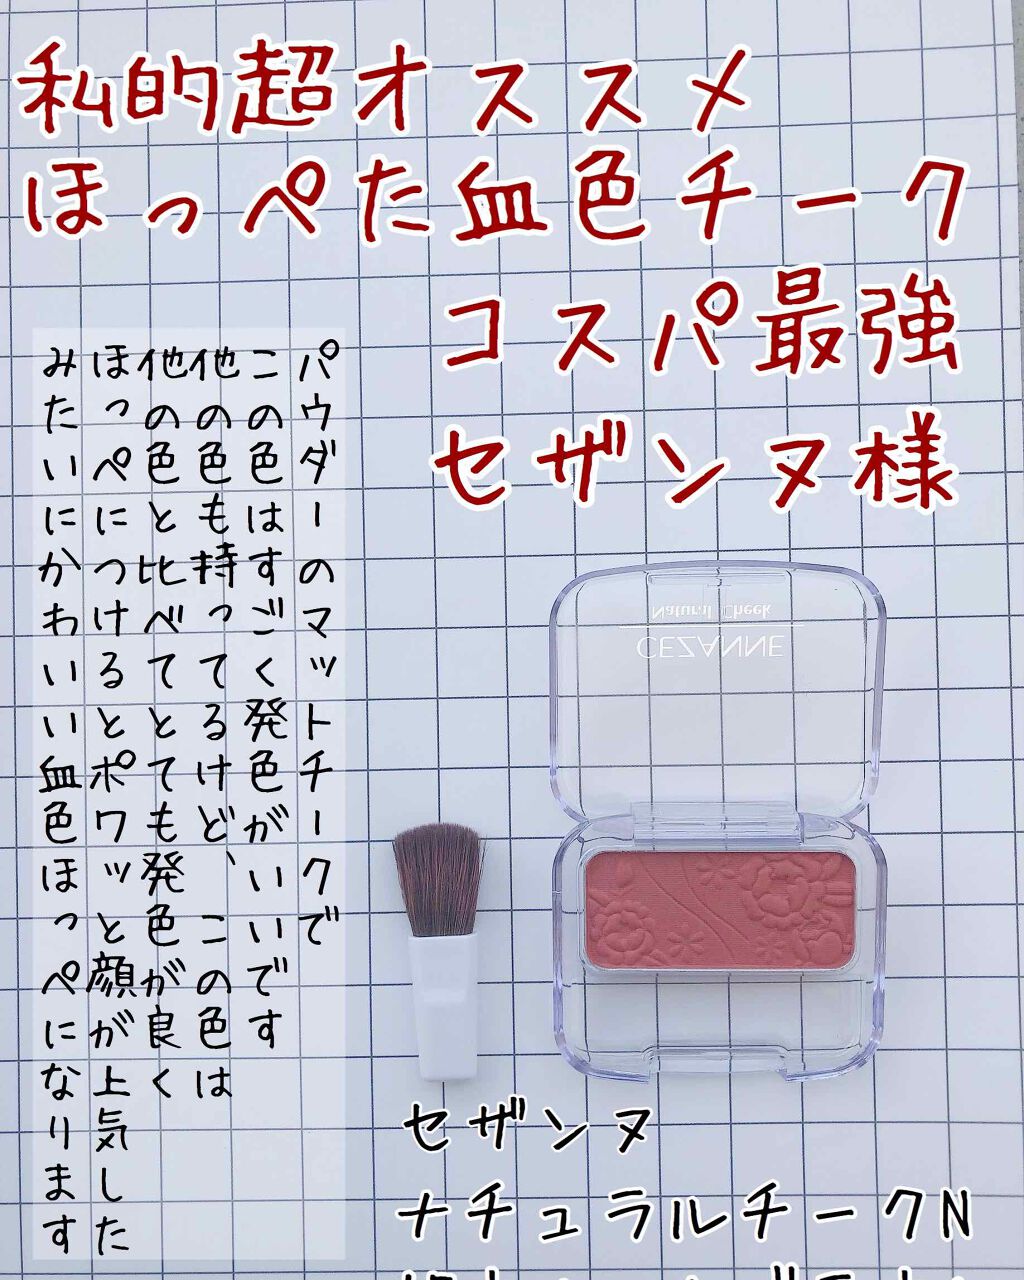 私的超オススメ
ほっぺた血色チーク
コスパ最強
セザンヌ様
パウダーのマットチークで
この色はすごく発色がいいです
他の色も持ってるけど、この色は
他の色と比べてとても発色が良く
ほっぺにつけるとポワッと顔が上気した
みたいにかわいい血色ほっぺになります
Natural Cheek
CEZANNE
セザンヌ
ナチュラルチークN